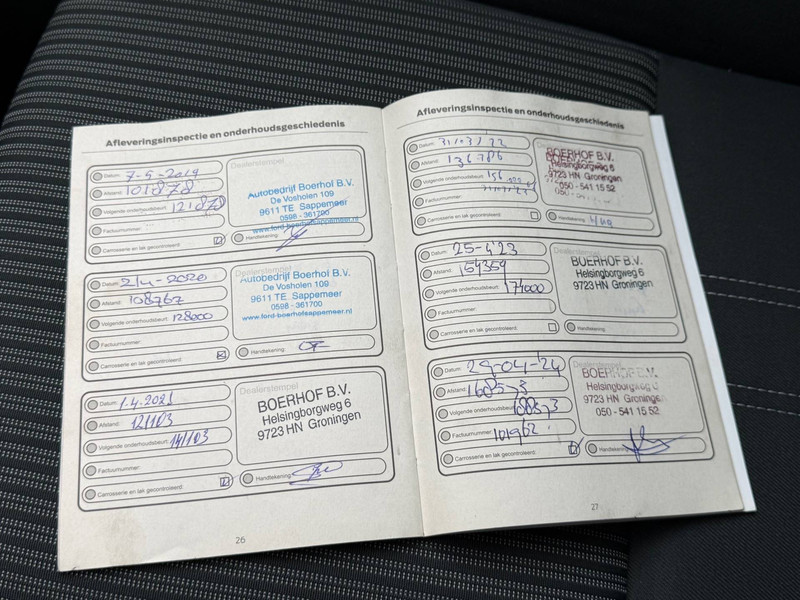 Afleveringsinspectie en onderhoudsgeschiedenis
Datum: 7-5-2019
Afstand: 101878
Volgende onderhoudsbeurt: 121878
Factuurnummer:
Carrosserie en lak gecontroleerd:
Dealerstempel
Autobedrijf Boerhof B.V.
De Vosholen 109
9611 TE Sappemeer
0598 - 361700
www.ford-boerhofsappemeer.nl
Handtekening:
Datum: 2/4-2020
Afstand: 108767
Volgende onderhoudsbeurt: 128000
Factuurnummer:
Carrosserie en lak gecontroleerd:
Dealerstempel
Autobedrijf Boerhof B.V.
De Vosholen 109
9611 TE Sappemeer
0598 - 361700
www.ford-boerhofsappemeer.nl
Handtekening:
Datum: 1.4.2021
Afstand: 121103
Volgende onderhoudsbeurt: 141103
Factuurnummer:
Carrosserie en lak gecontroleerd:
Dealerstempel
BOERHOF B.V.
Helsingborgweg 6
9723 HN Groningen
Handtekening:
26
Afleveringsinspectie en onderhoudsgeschiedenis
Datum: 31/03/22
Afstand: 136786
Volgende onderhoudsbeurt:
Factuurnummer:
Carrosserie en lak gecontroleerd:
BOERHOF B.V.
Helsingborgweg 6
9723 HN Groningen
050 - 541 15 52
Handtekening:
Datum: 25-4'23
Afstand: 154359
Volgende onderhoudsbeurt: 174000
Factuurnummer:
Carrosserie en lak gecontroleerd:
BOERHOF B.V.
Helsingborgweg 6
9723 HN Groningen
Handtekening:
Datum: 29-04-24
Afstand:
Volgende onderhoudsbeurt:
Factuurnummer: 101962
Carrosserie en lak gecontroleerd:
Dealerstempel
BOERHOF B.V.
Helsingborgweg 6
9723 HN Groningen
050 - 541 15 52
Handtekening:
27